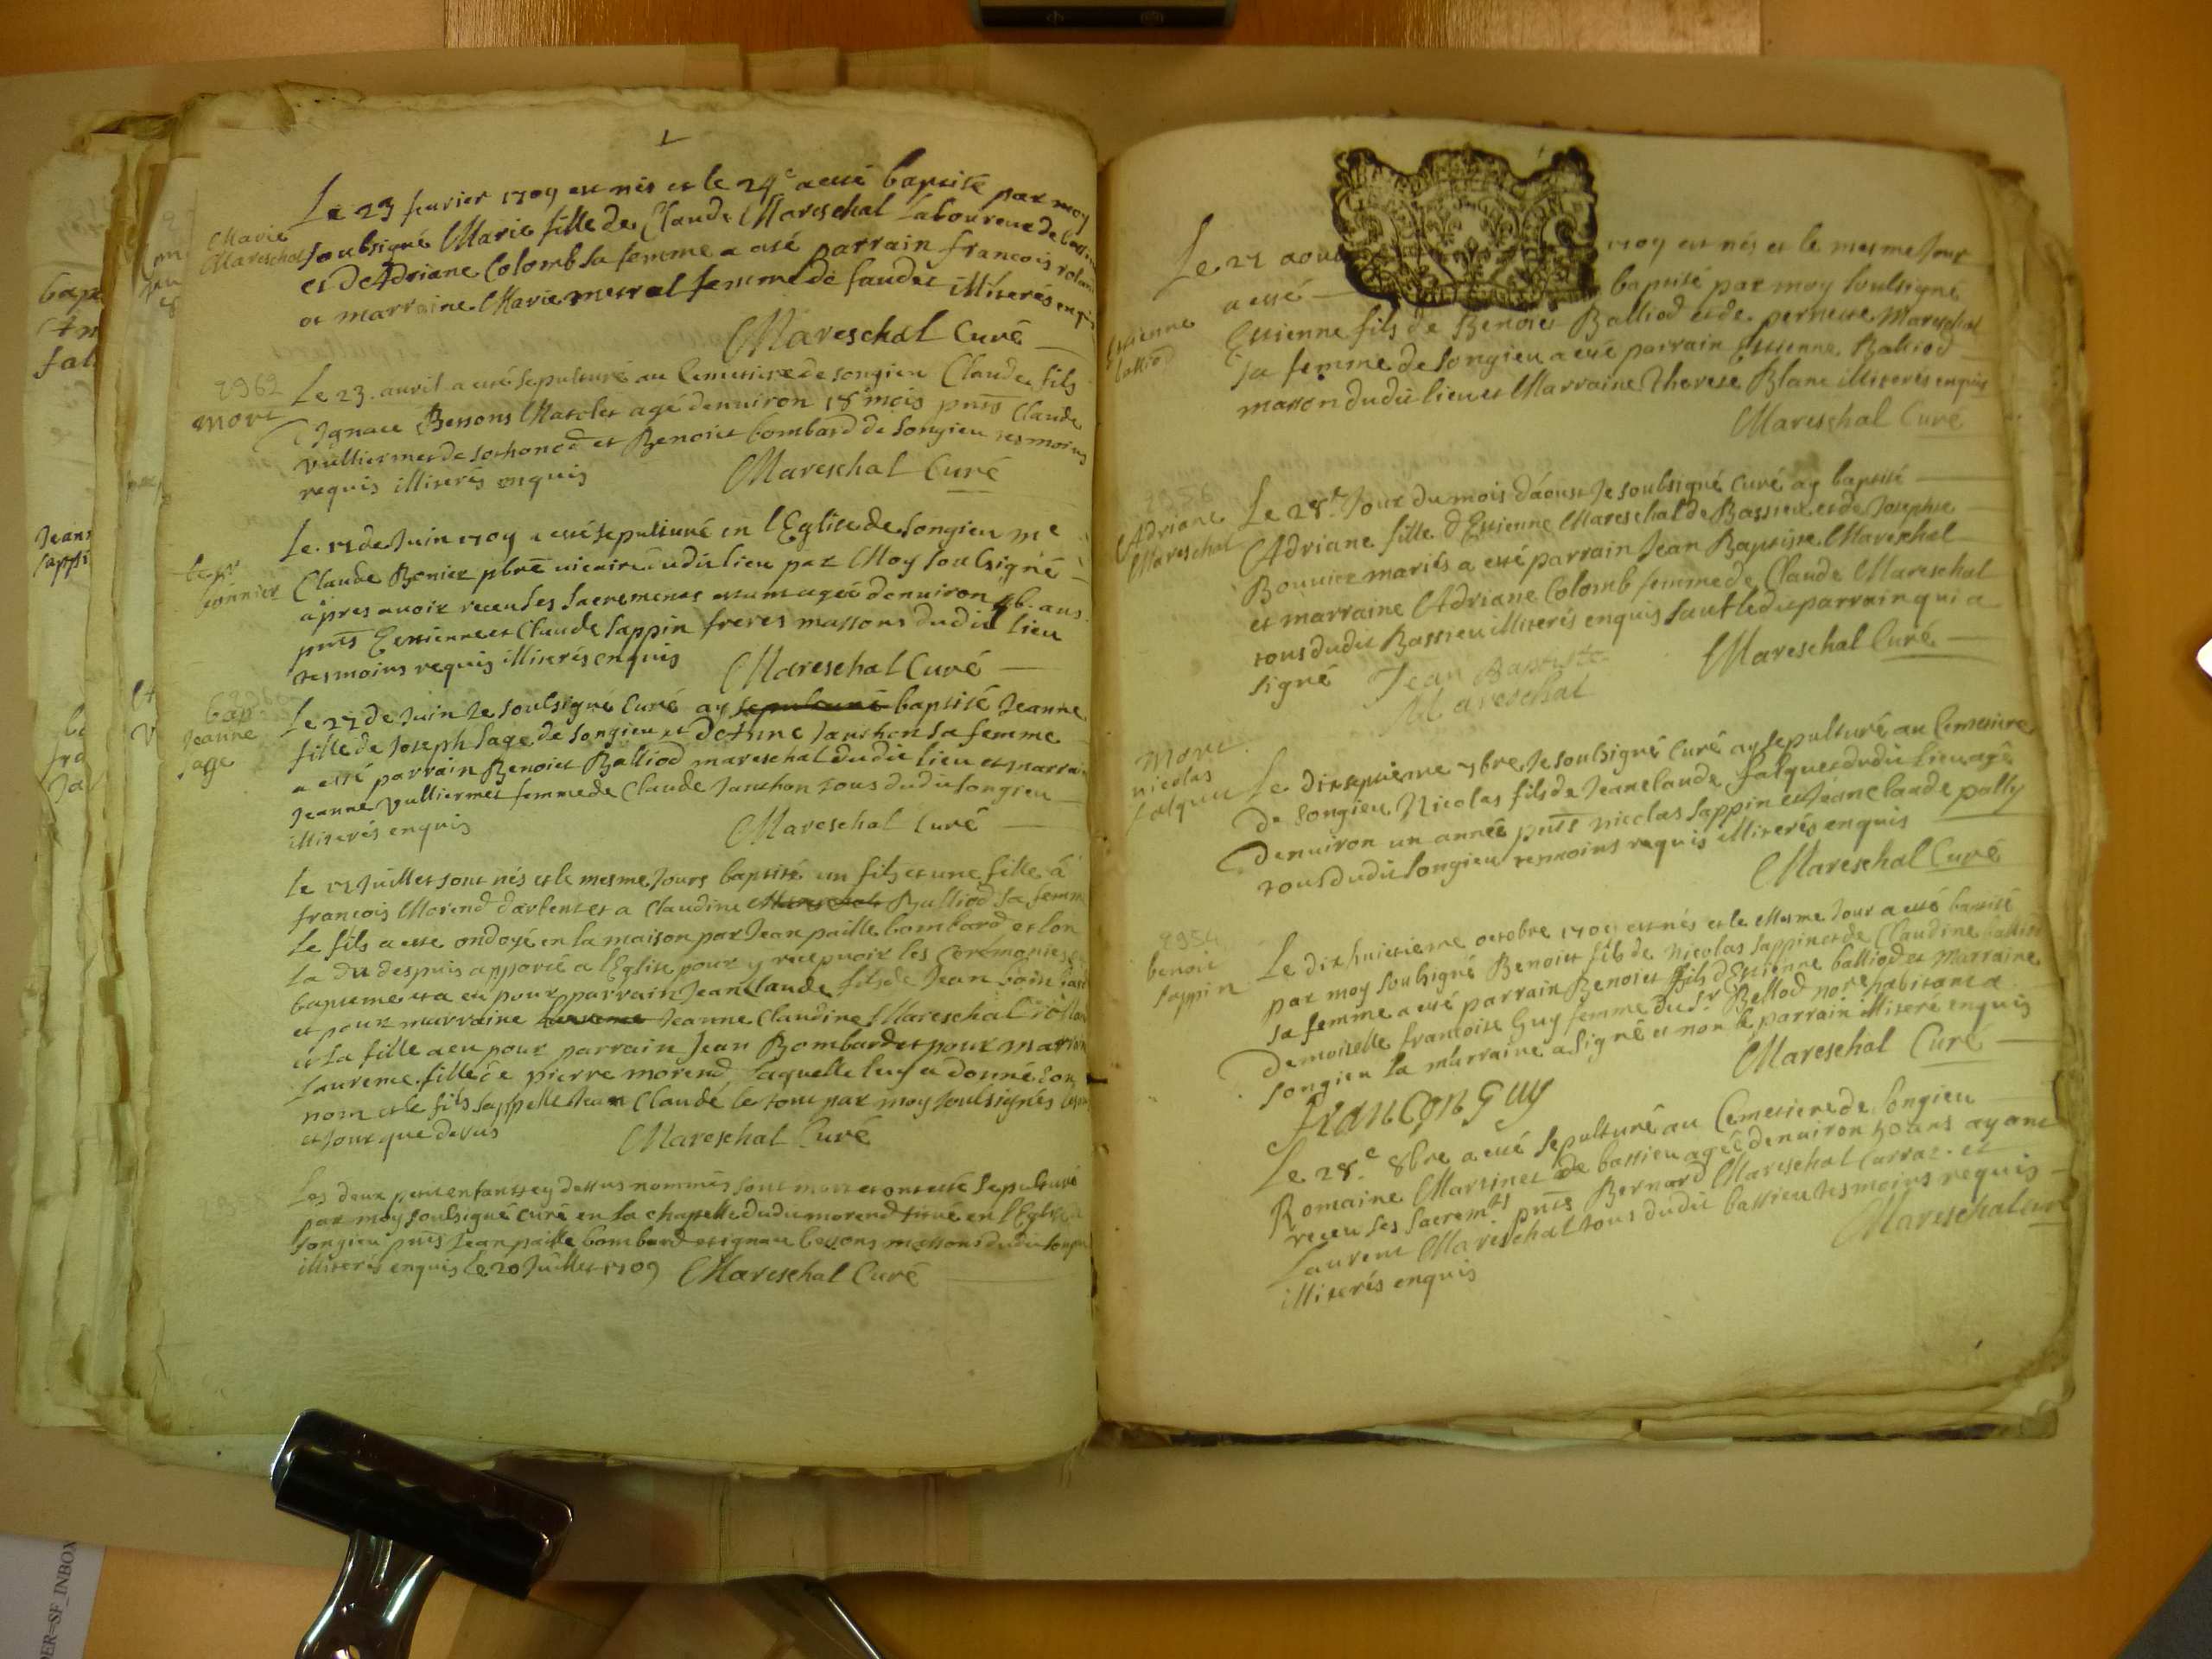 Le 23 feurier 1709 est née et le 24e a esté baptisé par moy
Marie
Mareschal
soubsigné Marie fille de Claude Mareschal laboureur de
et de Adriane Colomb sa femme a esté parrain francois
et marraine Marie mesral femme de faudet illiterés enquis
Mareschal Curé
2962
mort
Le 23. auril a esté sepulturé au Cemetiere de songieu Claude fils
Ignace Bessons Masclet agé denuiron 18 mois pnts Claude
vulliermet de sothonod et Benoict bombard de songieu tesmoins
requis illiterés enquis
Mareschal Curé
Le de Juin 1709 a esté sepulturé en l'Eglise de songieu me
Claude Bonier pbre uicaire dudit lieu par Moy soubsigné
apres auoir receu ses sacrements estant agée denuiron ans
pnts Estienne et Claude sappin freres massons dudit lieu
tesmoins requis illiterés enquis
Mareschal Curé
bap
Jeanne
sage
Le 27 de Juin Je soubsigné Curé ay sepulturé baptisé Jeanne
fille de Joseph sage de songieu et de Anne Janthon sa femme
a esté parrain Benoict Balliod mareschal dudit lieu et marrai
Jeanne vulliermet femme de Claude Janthon tous dudit songieu
illiterés enquis
Mareschal Curé
Le Juillet sont nés et le mesme Jours baptisé un fils et une fille à
francois Morend darbent et a Claudine Mareschal Balliod sa femm
Le fils a esté ondoyé en la maison par Jean paille bombard et lon
La du despuis apporté a l'Eglise pour y recepuoir les Ceremonies
bapteme et a eu pour parrain Jean Claude fils de Jean
et pour marraine Jeanne Claudine Mareschal
et la fille a eu pour parrain Jean Bombard et pour marrain
Laurence fille de pierre morend laquelle luy a donné son
nom et le fils sappelle Jean Claude le tout par moy soubsignés
et Jour que desus
Mareschal Curé
Les deux petit enfants cy dessus nommés sont mort et ont esté sepulturé
par moy soubsigné curé en la chappelle dudit morend situé en l'Eglise
songieu pnts Jean paille bombard et ignace bessons massons dudit songieu
illiterés enquis le 20 Juillet 1709
Mareschal Curé
Le 21 aoust 1709 est nés et le mesme Jour
a esté baptisé par moy soubsigné
Estienne
balliod
Estienne fils de Benoict Balliod et de pernette Mareschal
sa femme de songieu a esté parrain Estienne Balliod
masson dudit lieu et Marraine Therese Blanc illiterés enquis
Mareschal Curé
Adriane
Mareschal
Le 28e Jour du mois d'aoust Je soubsigné Curé ay baptisé
Adriane fille d'Estienne Mareschal de Bassieu et de Josephte
Bouuier mariés a esté parrain Jean Baptiste Mareschal
et marraine Adriane Colomb femme de Claude Mareschal
tous dudit Bassieu illiterés enquis sauf ledit parrain qui a
signé
Jean Baptiste
Mareschal
Mareschal Curé
Mort
nicolas
falquet
Le dixseptieme 7bre Je soubsigné Curé ay sepulturé au Cemetiere
de songieu Nicolas fils de Jeanclaude falquet dudit lieu agé
denuiron un année pnts nicolas sappin et Jeanclaude pally
tous dudit songieu tesmoins requis illiterés enquis
Mareschal Curé
2954
benoit
sappin
Le dixhuictieme octobre 1709 est nés et le Mesme Jour a esté baptisé
par moy soubsigné Benoict fils de Nicolas sappin et de Claudine balliod
sa femme a esté parrain Benoict fils d'Estienne balliod et Marraine
Demoiselle francoise Guy femme du Sr Bellod nore habitant a
songieu la marraine a signé et non le parrain illiteré enquis
Mareschal Curé
francon Guy
Le 28.e 8bre a esté sepulturé au Cemetiere de songieu
Romaine Martinet de bassieu agée denuiron 50 ans ayant
receu ses sacremts pnts Bernard Mareschal Carraz. et
Laurent Mareschal tous dudit bassieu tesmoins requis
illiterés enquis
Mareschal curé